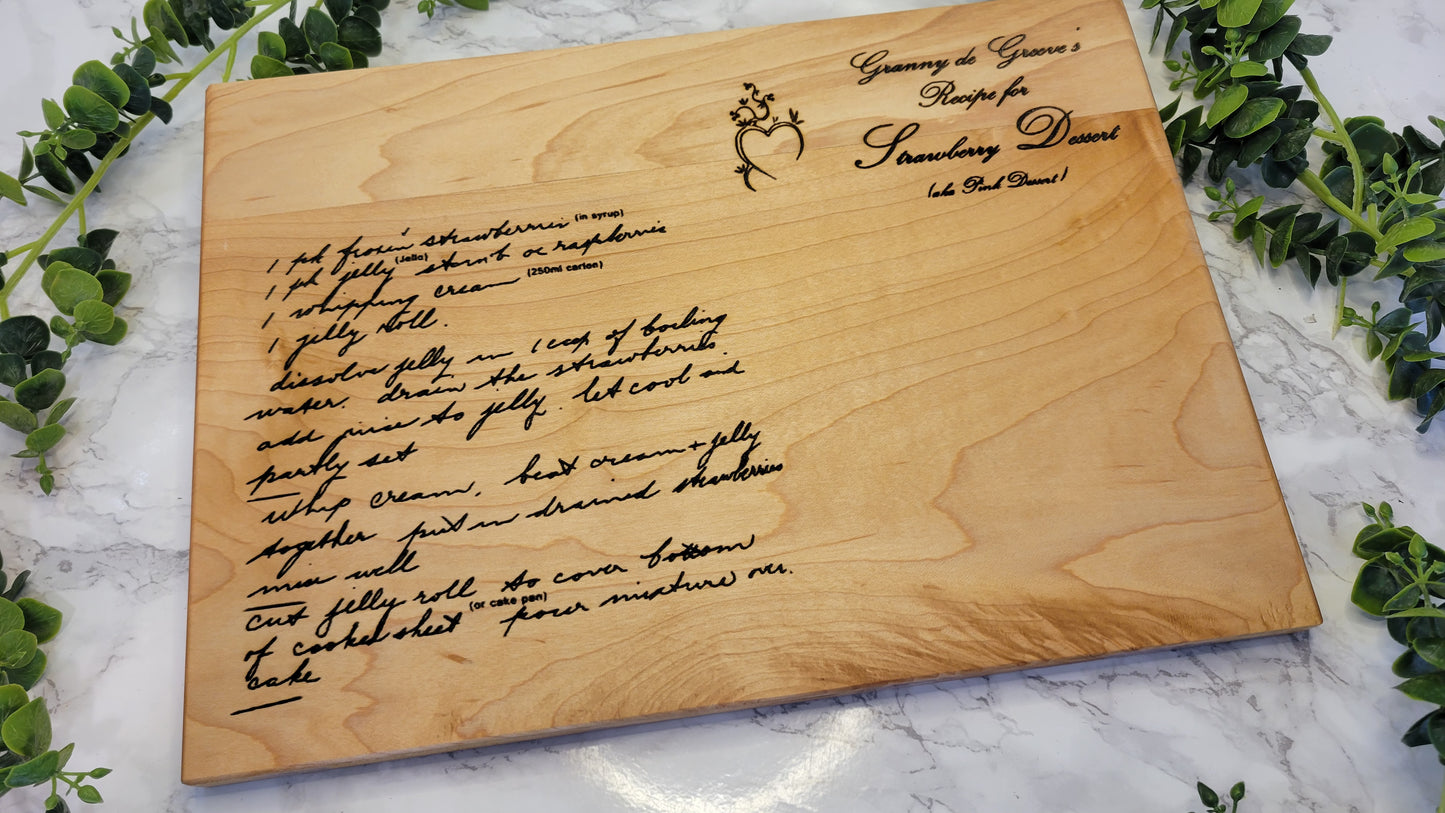 Granny de Greeve's
Recipe for
Strawberry Dessert
(aka Pink Dessert)
1 pk frozen strawberries (in syrup)
1 pk jelly (Jello) strawb or raspberries
1 whipping cream (250ml carton)
1 jelly roll.
dissolve jelly in 1 cup of boiling
water. drain the strawberries.
add juice to jelly. let cool and
partly set
whip cream, beat cream + jelly
together put in drained strawberries
mix well
cut jelly roll to cover bottom
of cookie sheet (or cake pan) pour mixture over.
cake